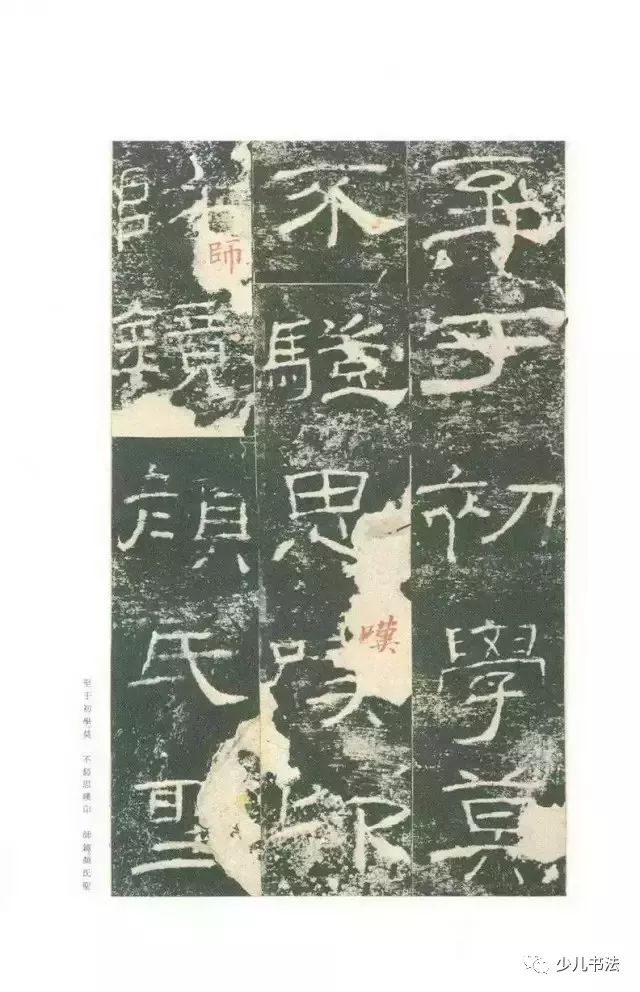 至于初學莫
不思嘆卬
師鏡顏氏聖
嘆
師
至于初學莫 不思嘆卬 師鏡顏氏聖
少儿书法